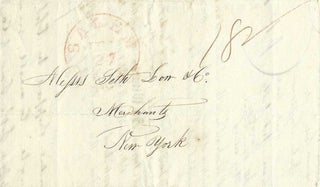 SALEM
27
18
Messrs Seth Low & Co.
Merchants
New York